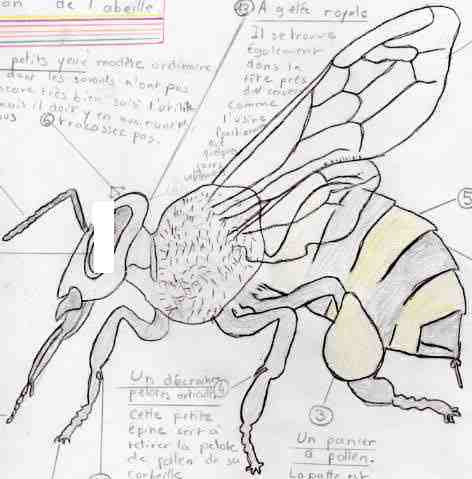 on de l'abeille
petits yeux modète ordinaire
dont les savants n'ont pas
encore très bien saisi l'utilité
mais il doit y en avoir une
vous ⑥ tracassez pas.
⑫ A gelée royale
Il se trouve
également
dans la
tête près
du cerveau
comme
l'usine
⑤
Un décrocheur
pelotes articulé
Cette petite
épine sert à
retirer la pelote
de pollen de sa
corbeille
③
Un panier
à pollen.
La patte est